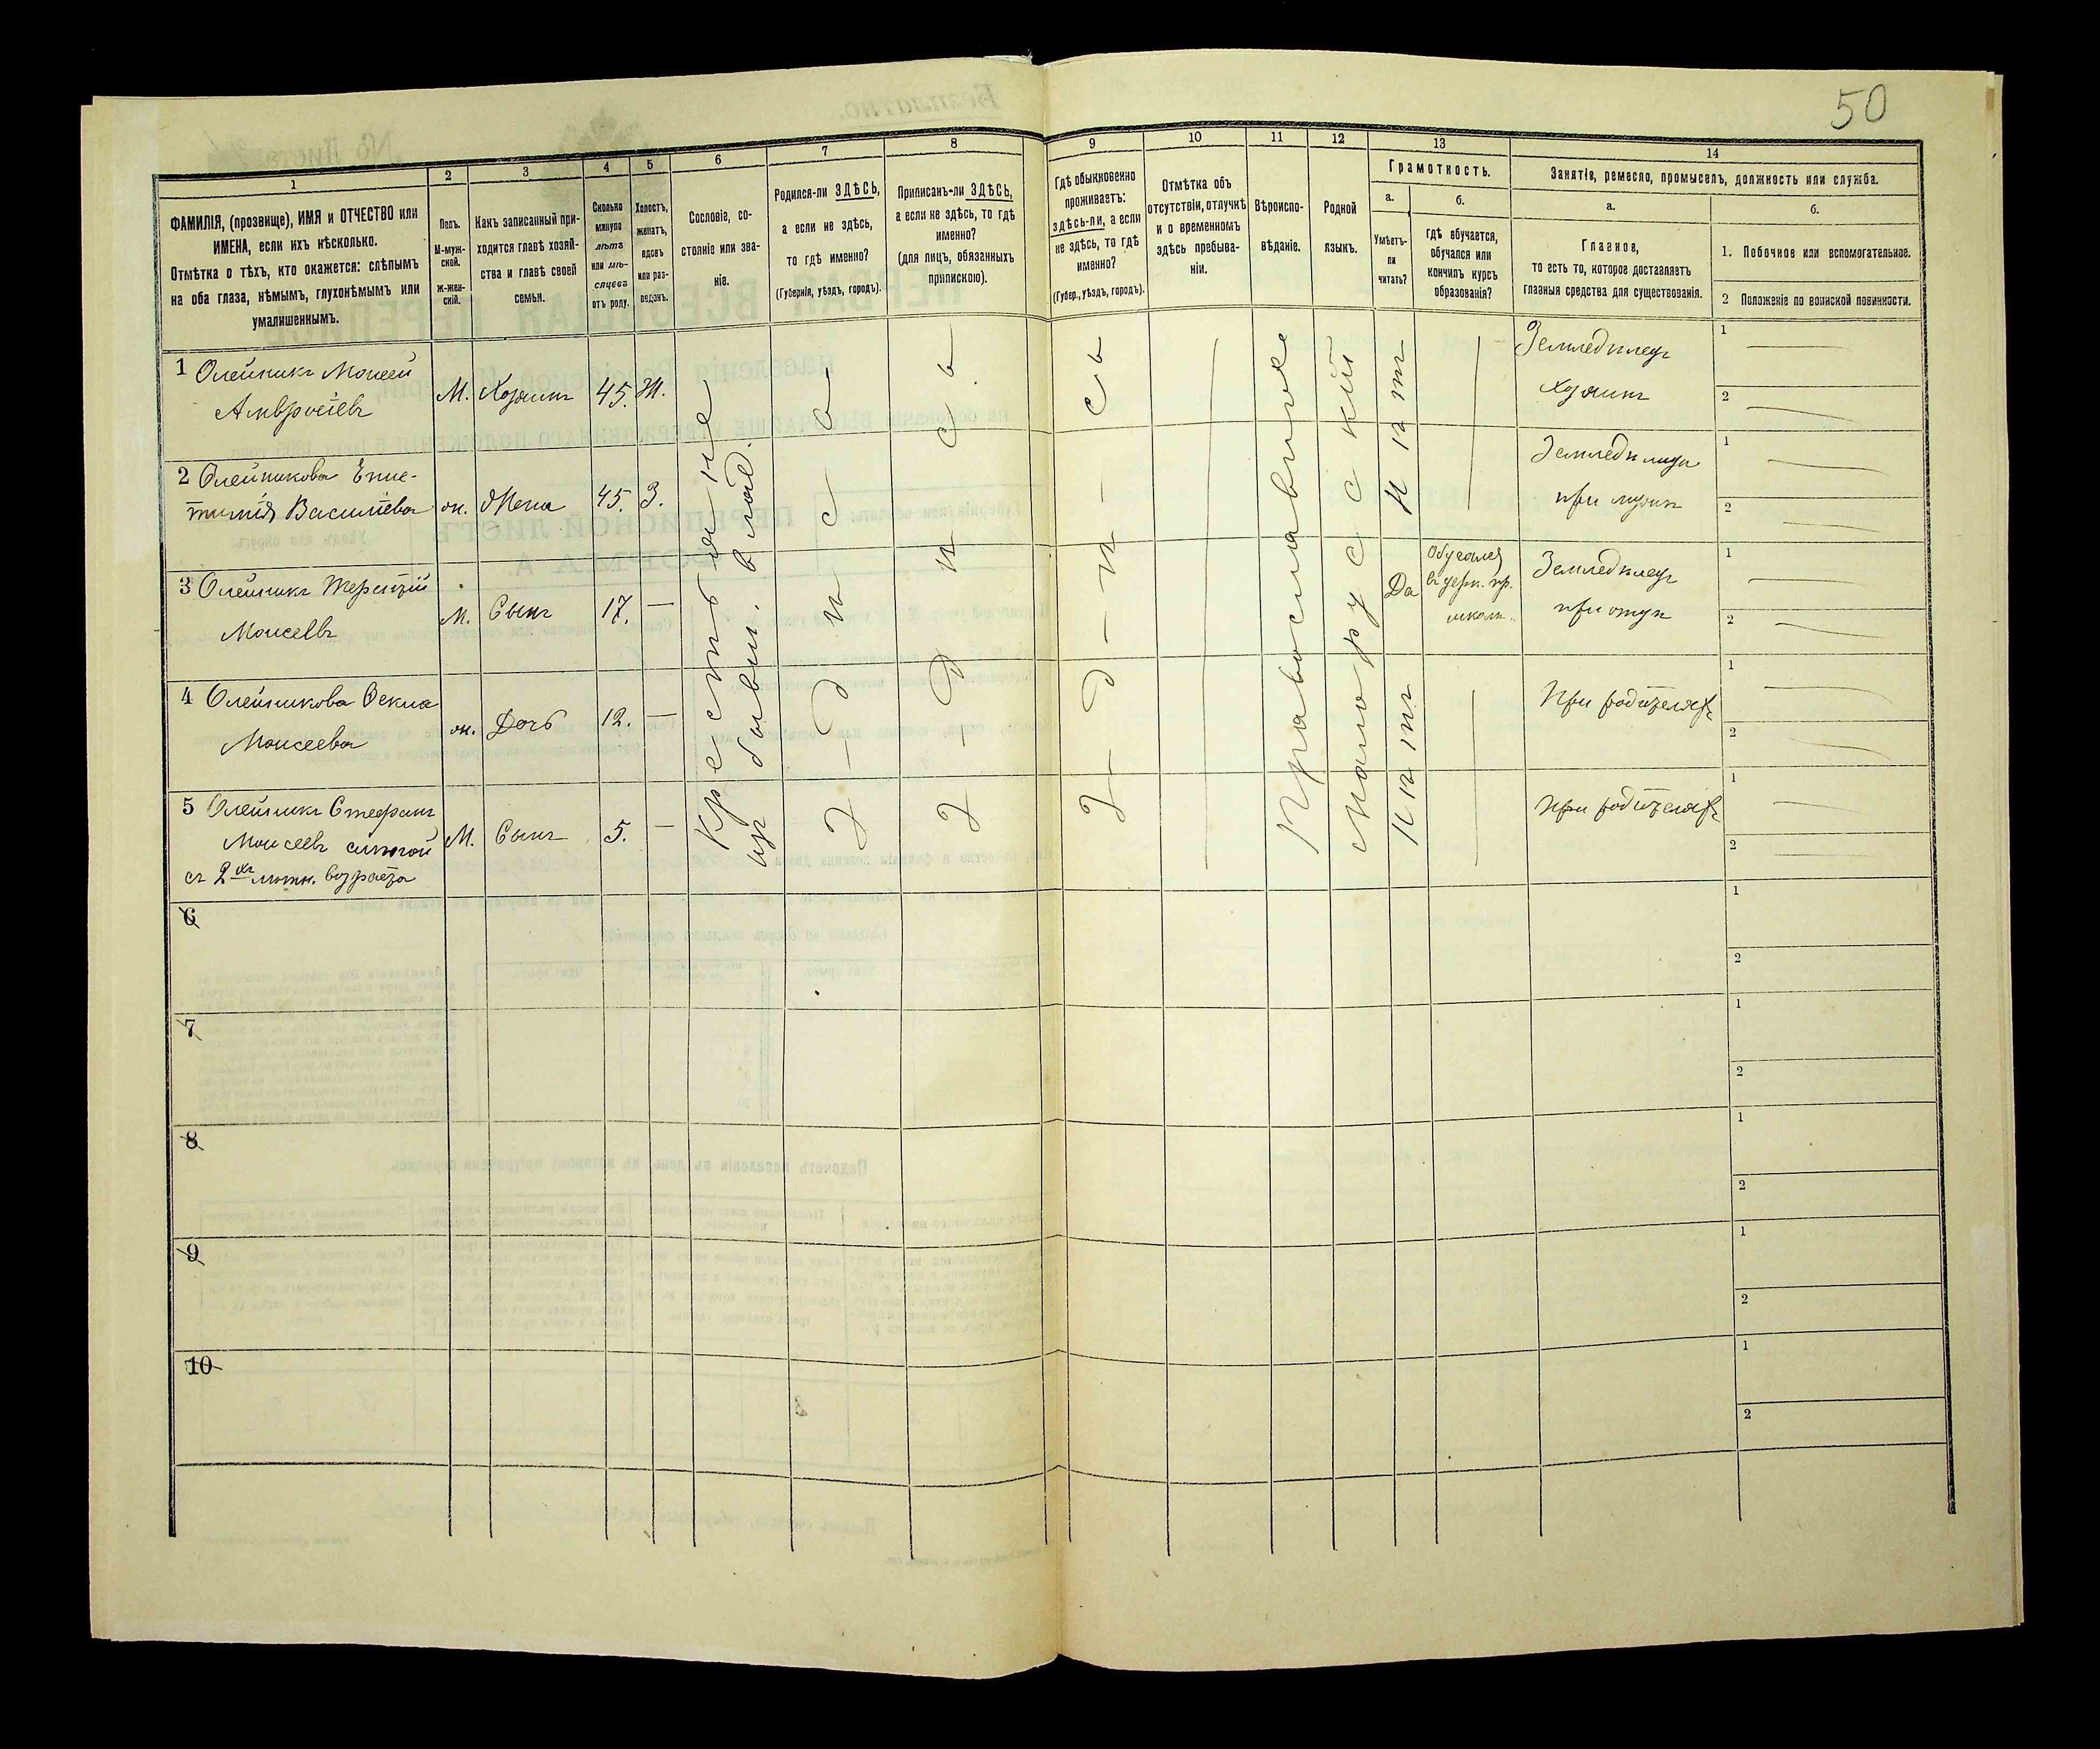 50
1
2
3
4
5
6
7
8
9
10
11
12
13
14
ФАМИЛІЯ, (прозвище), ИМЯ и ОТЧЕСТВО или
ИМЕНА, если ихъ нѣсколько.
Отмѣтка о тѣхъ, кто окажется: слѣпымъ
на оба глаза, нѣмымъ, глухонѣмымъ или
умалишеннымъ.
Полъ.
М-муж-
ской.
Ж-жен-
скій.
Какъ записанный при-
ходится главѣ хозяй-
ства и главѣ своей
семьи.
Сколько
минуло
лѣтъ
или мѣ-
сяцевъ
отъ роду.
Холостъ,
женатъ,
вдовъ
или раз-
веденъ.
Сословіе, со-
стояніе или зва-
ніе.
Родился-ли ЗДѢСЬ,
а если не здѣсь,
то гдѣ именно?
(Губернія, уѣздъ, городъ).
Приписанъ-ли ЗДѢСЬ,
а если не здѣсь, то гдѣ
именно?
(для лицъ, обязанныхъ
припискою).
Гдѣ обыкновенно
проживаетъ:
здѣсь-ли, а если
не здѣсь, то гдѣ
именно?
(Губер., уѣздъ, городъ).
Отмѣтка объ
отсутствіи, отлучкѣ
и о временномъ
здѣсь пребыва-
ніи.
Вѣроиспо-
вѣданіе.
Родной
языкъ.
Грамотность.
а.
Умѣетъ-
ли
читать?
б.
гдѣ обучается,
обучался или
кончилъ курсъ
образованія?
Занятія, ремесло, промыселъ, должность или служба.
а.
Главное,
то есть то, которое доставляетъ
главныя средства для существованія.
б.
1. Побочное или вспомогательное.
2 Положеніе по воинской повинности.
1 Олейникъ Моисей
Амвросіевъ
М.
Хозяинъ
45.
Ж.
Крестьяне
изъ бывш. влад.
З-д-ѣ-с-ь
З-д-ѣ-с-ь
З-д-ѣ-с-ь
Православное
Малорусскій
Нѣтъ
Земледѣлецъ
хозяинъ
1
2
2 Олейникова Епис-
тимія Васильева
ж.
Жена
45.
З.
Земледѣлица
при мужѣ
1
2
3 Олейникъ Терентій
Моисеевъ
М.
Сынъ
17.
—
Да
Обучался
въ церк. пр.
школѣ.
Земледѣлецъ
при отцѣ
1
2
4 Олейникова Ѳекла
Моисеева
ж.
Дочь
12.
—
Нѣтъ
При родителяхъ
1
2
5 Олейникъ Стефанъ
Моисеевъ слѣпой
съ 2хъ лѣтн. возраста
М.
Сынъ
5.
—
При родителяхъ
1
2
6
1
2
7
1
2
8
1
2
9
1
2
10
1
2